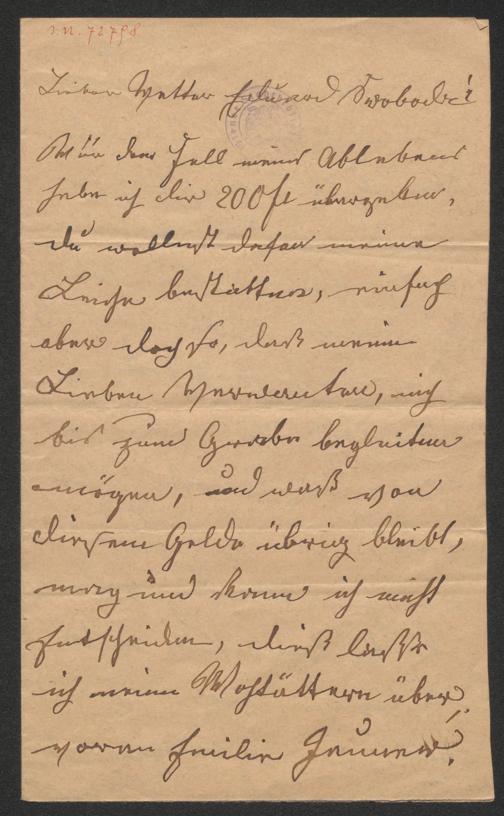 I.N. 72798
Lieber Vetter Eduard Swoboda!
Für den Fall meines Ablebens
habe ich dir 200 fl übergeben,
du wollest dafür meine
Leiche bestatten, einfach
aber doch so, daß meine
Lieben Verwanten, mich
bis zum Grabe begleiten
mögen, und waß von
diesem Gelde übrig bleibt,
mag und kann ich nicht
Entscheiden, dieß lasse
ich meinen Wohltättern über,
voran Emilie